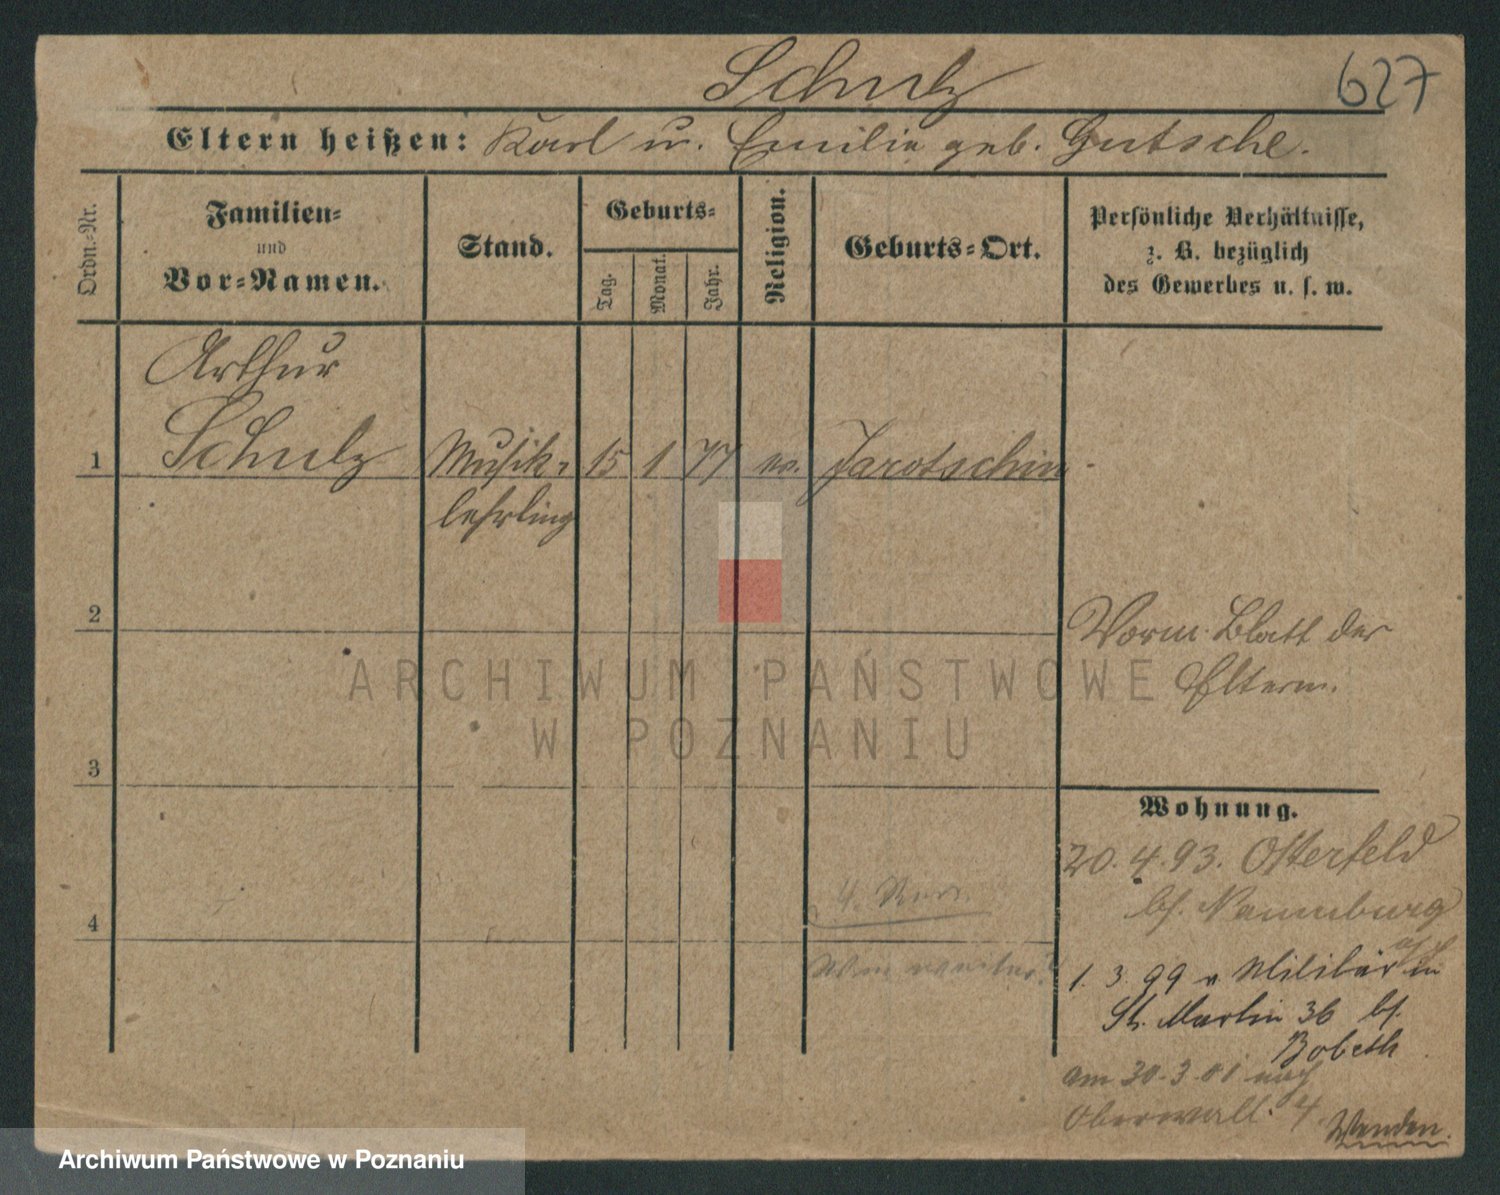 Schulz
627
Eltern heißen: Karl u. Emilie geb. Gutsche.
Ordn.-Nr.
Familien-
und
Vor-Namen.
Stand.
Geburts-
Tag.
Monat.
Jahr.
Religion.
Geburts-Ort.
Persönliche Verhältnisse,
z. B. bezüglich
des Gewerbes u. s. w.
Arthur
1 Schulz Musik- 15 1 77 ev. Jarotschin
lehrling
2
Vorm. Blatt der
Eltern.
3
Wohnung.
20.4.93. Osterfeld
bf. Naumburg
4
1.3.99 v Militär in
St. Martin 36 bf.
Bobeth
am 30.3.01 nach
Oberwall 4
Wenden.
ARCHIWUM PAŃSTWOWE
W POZNANIU
Archiwum Państwowe w Poznaniu